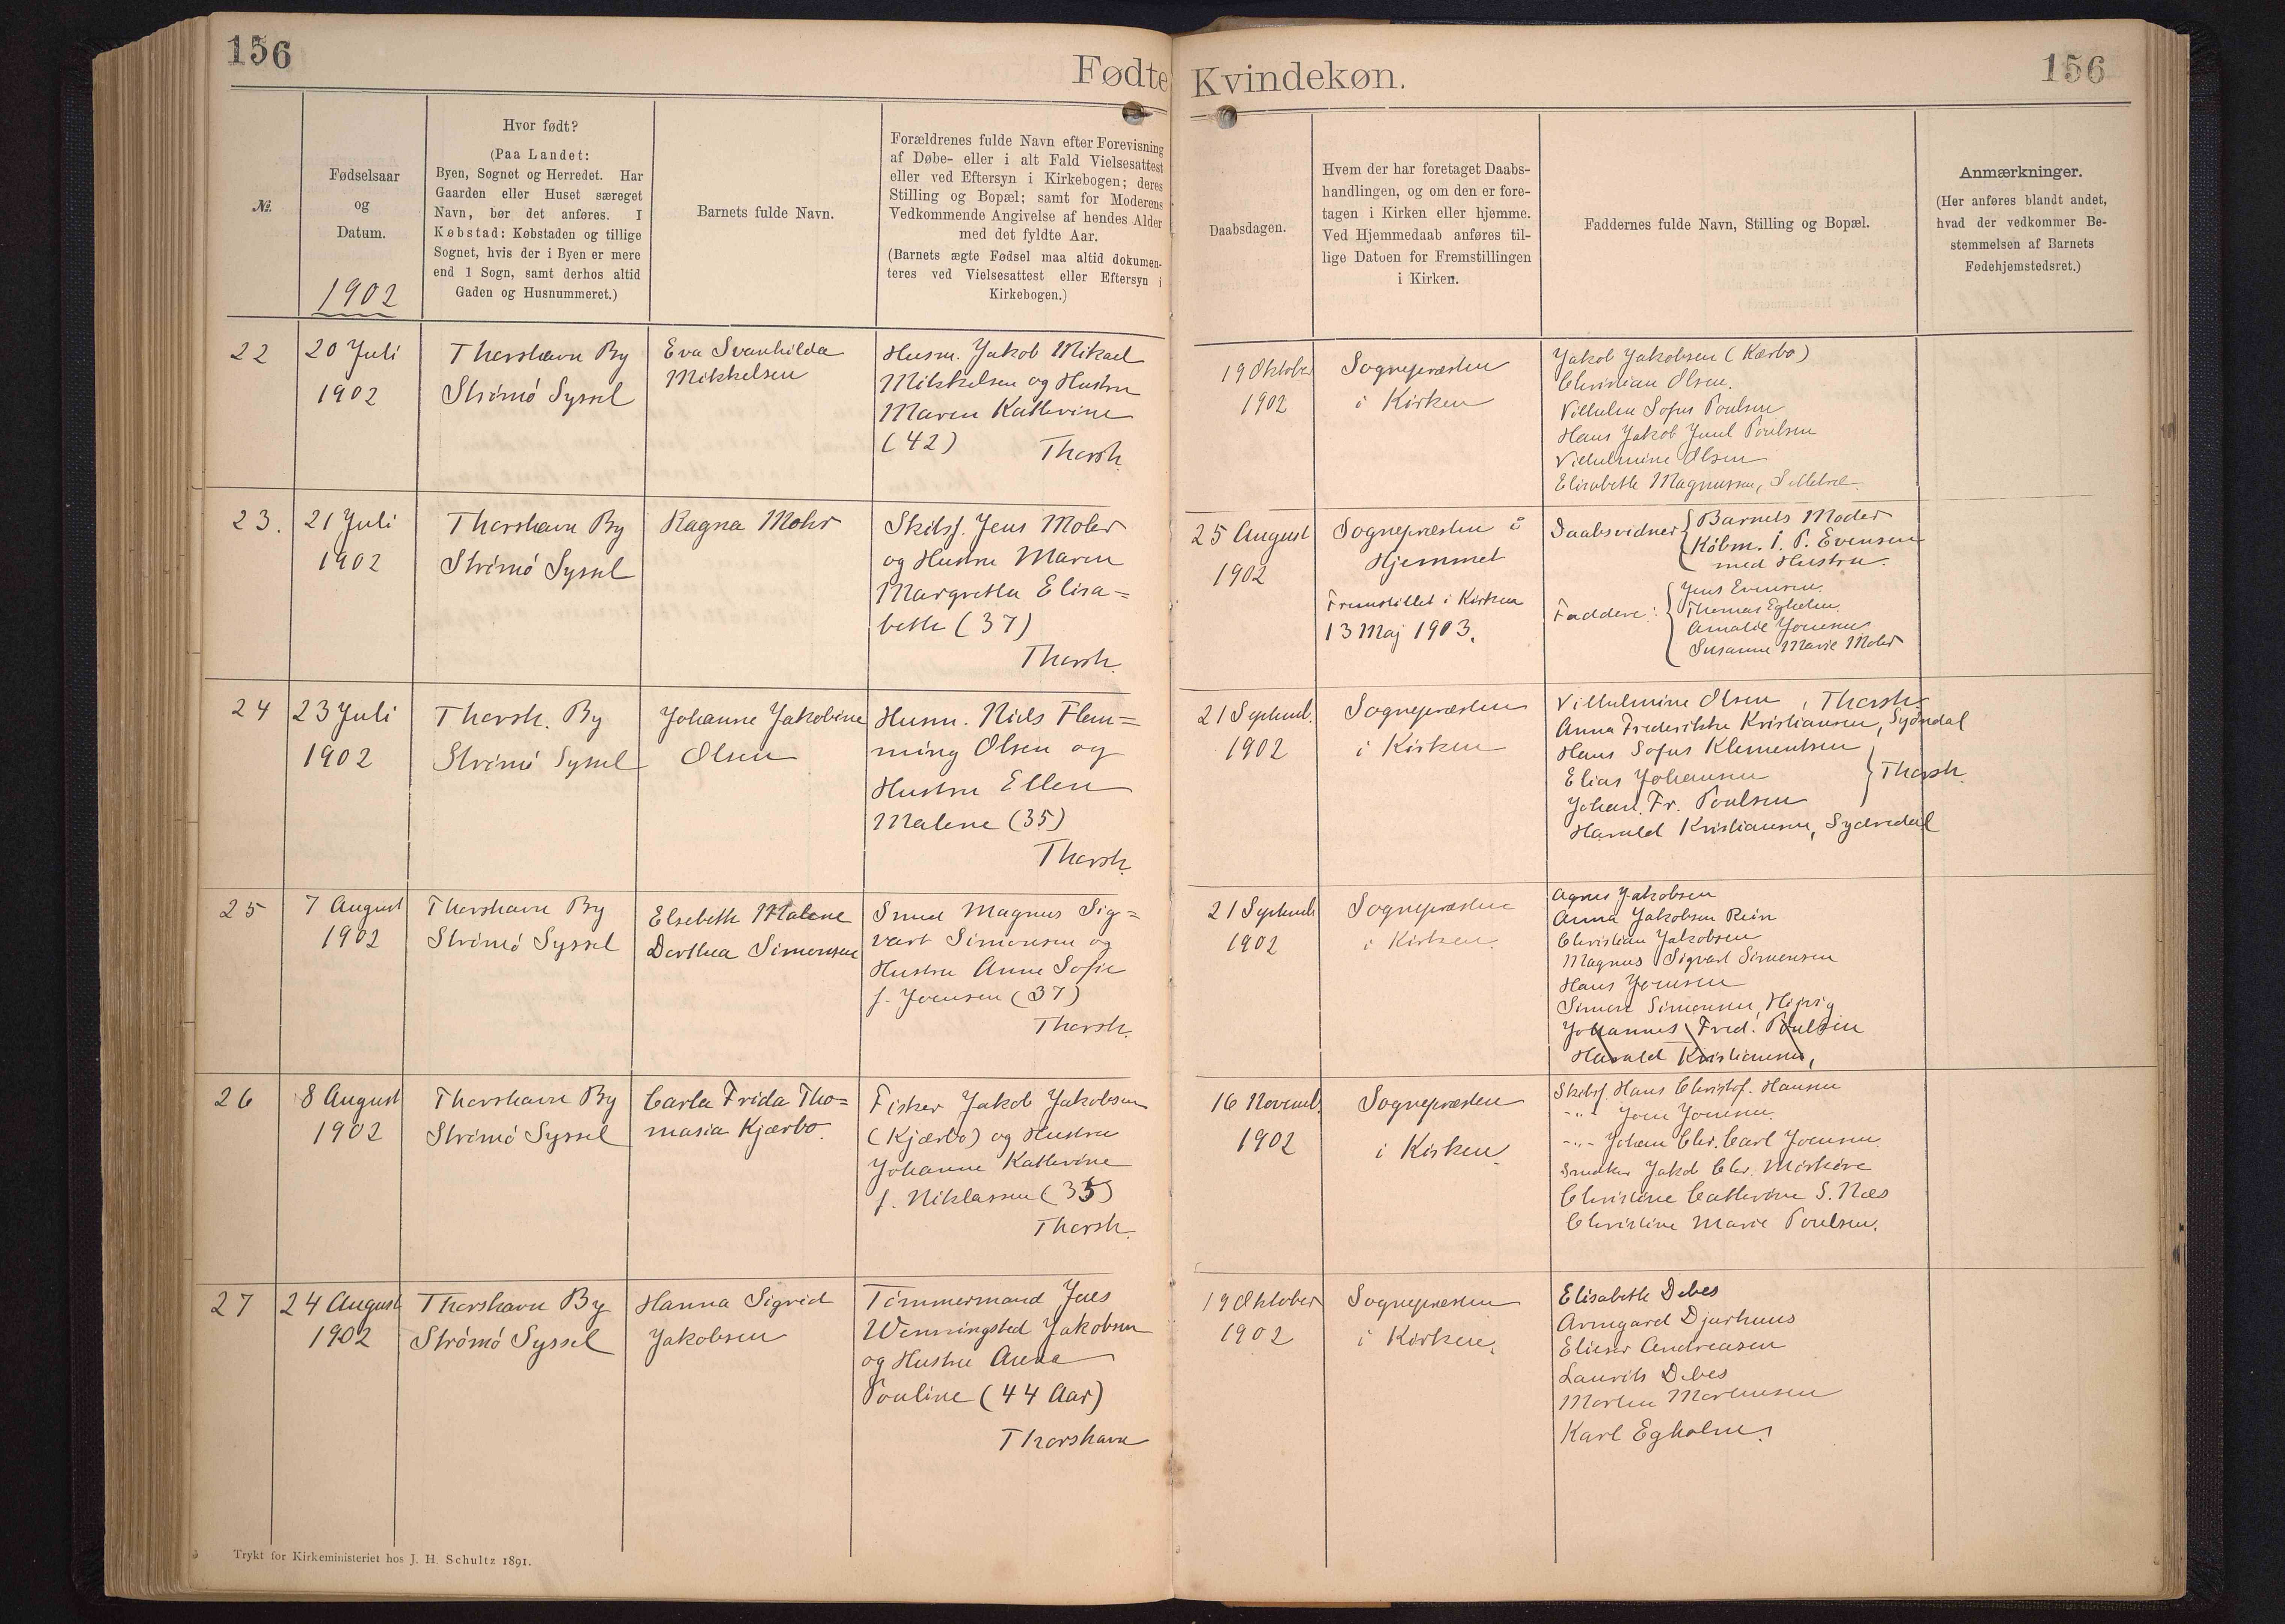 156
Fødte
Kvindekøn.
156
№.
Fødselsaar
og
Datum.
1902
Hvor født?
(Paa Landet:
Byen, Sognet og Herredet. Har
Gaarden eller Huset særeget
Navn, bør det anføres. I
Købstad: Købstaden og tillige
Sognet, hvis der i Byen er mere
end 1 Sogn, samt derhos altid
Gaden og Husnummeret.)
Barnets fulde Navn.
Forældrenes fulde Navn efter Forevisning
af Døbe- eller i alt Fald Vielsesattest
eller ved Eftersyn i Kirkebogen; deres
Stilling og Bopæl; samt for Moderens
Vedkommende Angivelse af hendes Alder
med det fyldte Aar.
(Barnets ægte Fødsel maa altid dokumen-
teres ved Vielsesattest eller Eftersyn i
Kirkebogen.)
Daabsdagen.
Hvem der har foretaget Daabs-
handlingen, og om den er fore-
tagen i Kirken eller hjemme.
Ved Hjemmedaab anføres til-
lige Datoen for Fremstillingen
i Kirken.
Faddernes fulde Navn, Stilling og Bopæl.
Anmærkninger.
(Her anføres blandt andet,
hvad der vedkommer Be-
stemmelsen af Barnets
Fødehjemstedsret.)
22
20 Juli
1902
Thorshavn By
Strömö Syssel
Eva Svanhilda
Mikkelsen
Husm. Jakob Mikael
Mikkelsen og Hustru
Maren Kathrine
(42)
Thorsh.
19 Oktober
1902
Sognepræsten
i Kirken
Jakob Jakobsen (Kærbo)
Christian Olsen.
Vilhelm Sofus Poulsen
Hans Jakob Juul Poulsen
Vilhelmine Olsen
Elisabeth Magnussen,
23.
21 Juli
1902
Thorshavn By
Strömö Syssel
Ragna Mohr
Skibsf. Jens Mohr
og Hustru Maren
Margretha Elisa=
beth (37)
Thorsh.
25 August
1902
Sognepræsten i
Hjemmet
Fremstillet i Kirken
13 Maj 1903.
Daabsvidner
Barnets Moder
Köbm. I. P. Evensen
med Hustru.
Faddere:
Jens Evensen.
Thomas Egholm.
Amalie Joensen
Susanne Marie Mohr
24
23 Juli
1902
Thorsh. By
Strömö Syssel
Johanne Jakobine
Olsen
Husm. Niels Flem=
ming Olsen og
Hustru Ellen
Malene (35)
Thorsh.
21 Septemb.
1902
Sognepræsten
i Kirken
Vilhelmine Olsen, Thorsh.
Anna Frederikke Kristiansen, Syd
Hans Sofus Klementsen
Elias Johansen
Thorsh.
Johan. Fr. Poulsen
Harald Kristiansen,
25
7 August
1902
Thorshavn By
Strömö Syssel
Elsebeth Malene
Dorthea Simonsen
Smed Magnus Sig=
vart Simonsen og
Hustru Anne Sofie
f. Joensen (37)
Thorsh.
21 Septemb
1902
Sognepræsten
i Kirken.
Agnes Jakobsen
Anna Jakobsen Rein
Christian Jakobsen
Magnus Sigvart Simonsen
Hans Joensen
Simon Simonsen,
Johannes Fred. Poulsen
Harald Kristiansen,
26
8 August
1902
Thorshavn By
Strömö Syssel
Carla Frida Tho=
masia Kjærbo.
Fisker Jakob Jakobsen
(Kjærbo) og Hustru
Johanne Kathrine
f. Niklassen (35)
Thorsh.
16 Novemb.
1902
Sognepræsten
i Kirken.
Skibsf. Hans Christof. Hansen
-"- Joen Joensen.
-"- Johan Chr. Carl Joensen
Snedker Jakob Chr. Mörköre
Christine Cathrine S. Næs
Christine Marie Poulsen.
27
24 August
1902
Thorshavn By
Strömö Syssel
Hanna Sigrid
Jakobsen
Tömmermand Jens
Wenningsted Jakobsen
og Hustru Anna
Pouline (44 Aar)
Thorshavn
19 Oktober
1902
Sognepræsten
i Kirken.
Elisabeth Debes
Armgard Djurhuus
Elieser Andreasen
Laurits Debes
Morten Mortensen
Karl Egholm.
Trykt for Kirkeministeriet hos J. H. Schultz 1891.